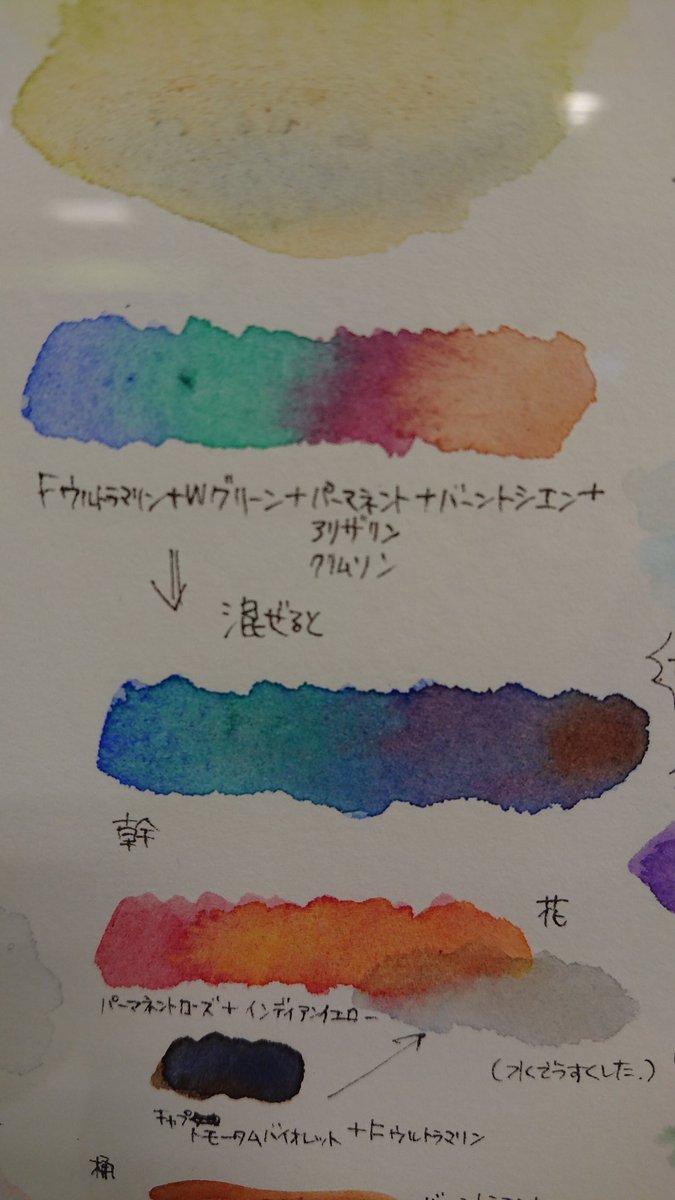 Fウルトラマリン+Wグリーン+パーマネント+バーントシエン+
アリザリン
クリムソン
混ぜると
幹
花
パーマネントローズ+インディアンイエロー
(水でうすくした.)
キャプ
トモータムバイオレット+Fウルトラマリン
桶